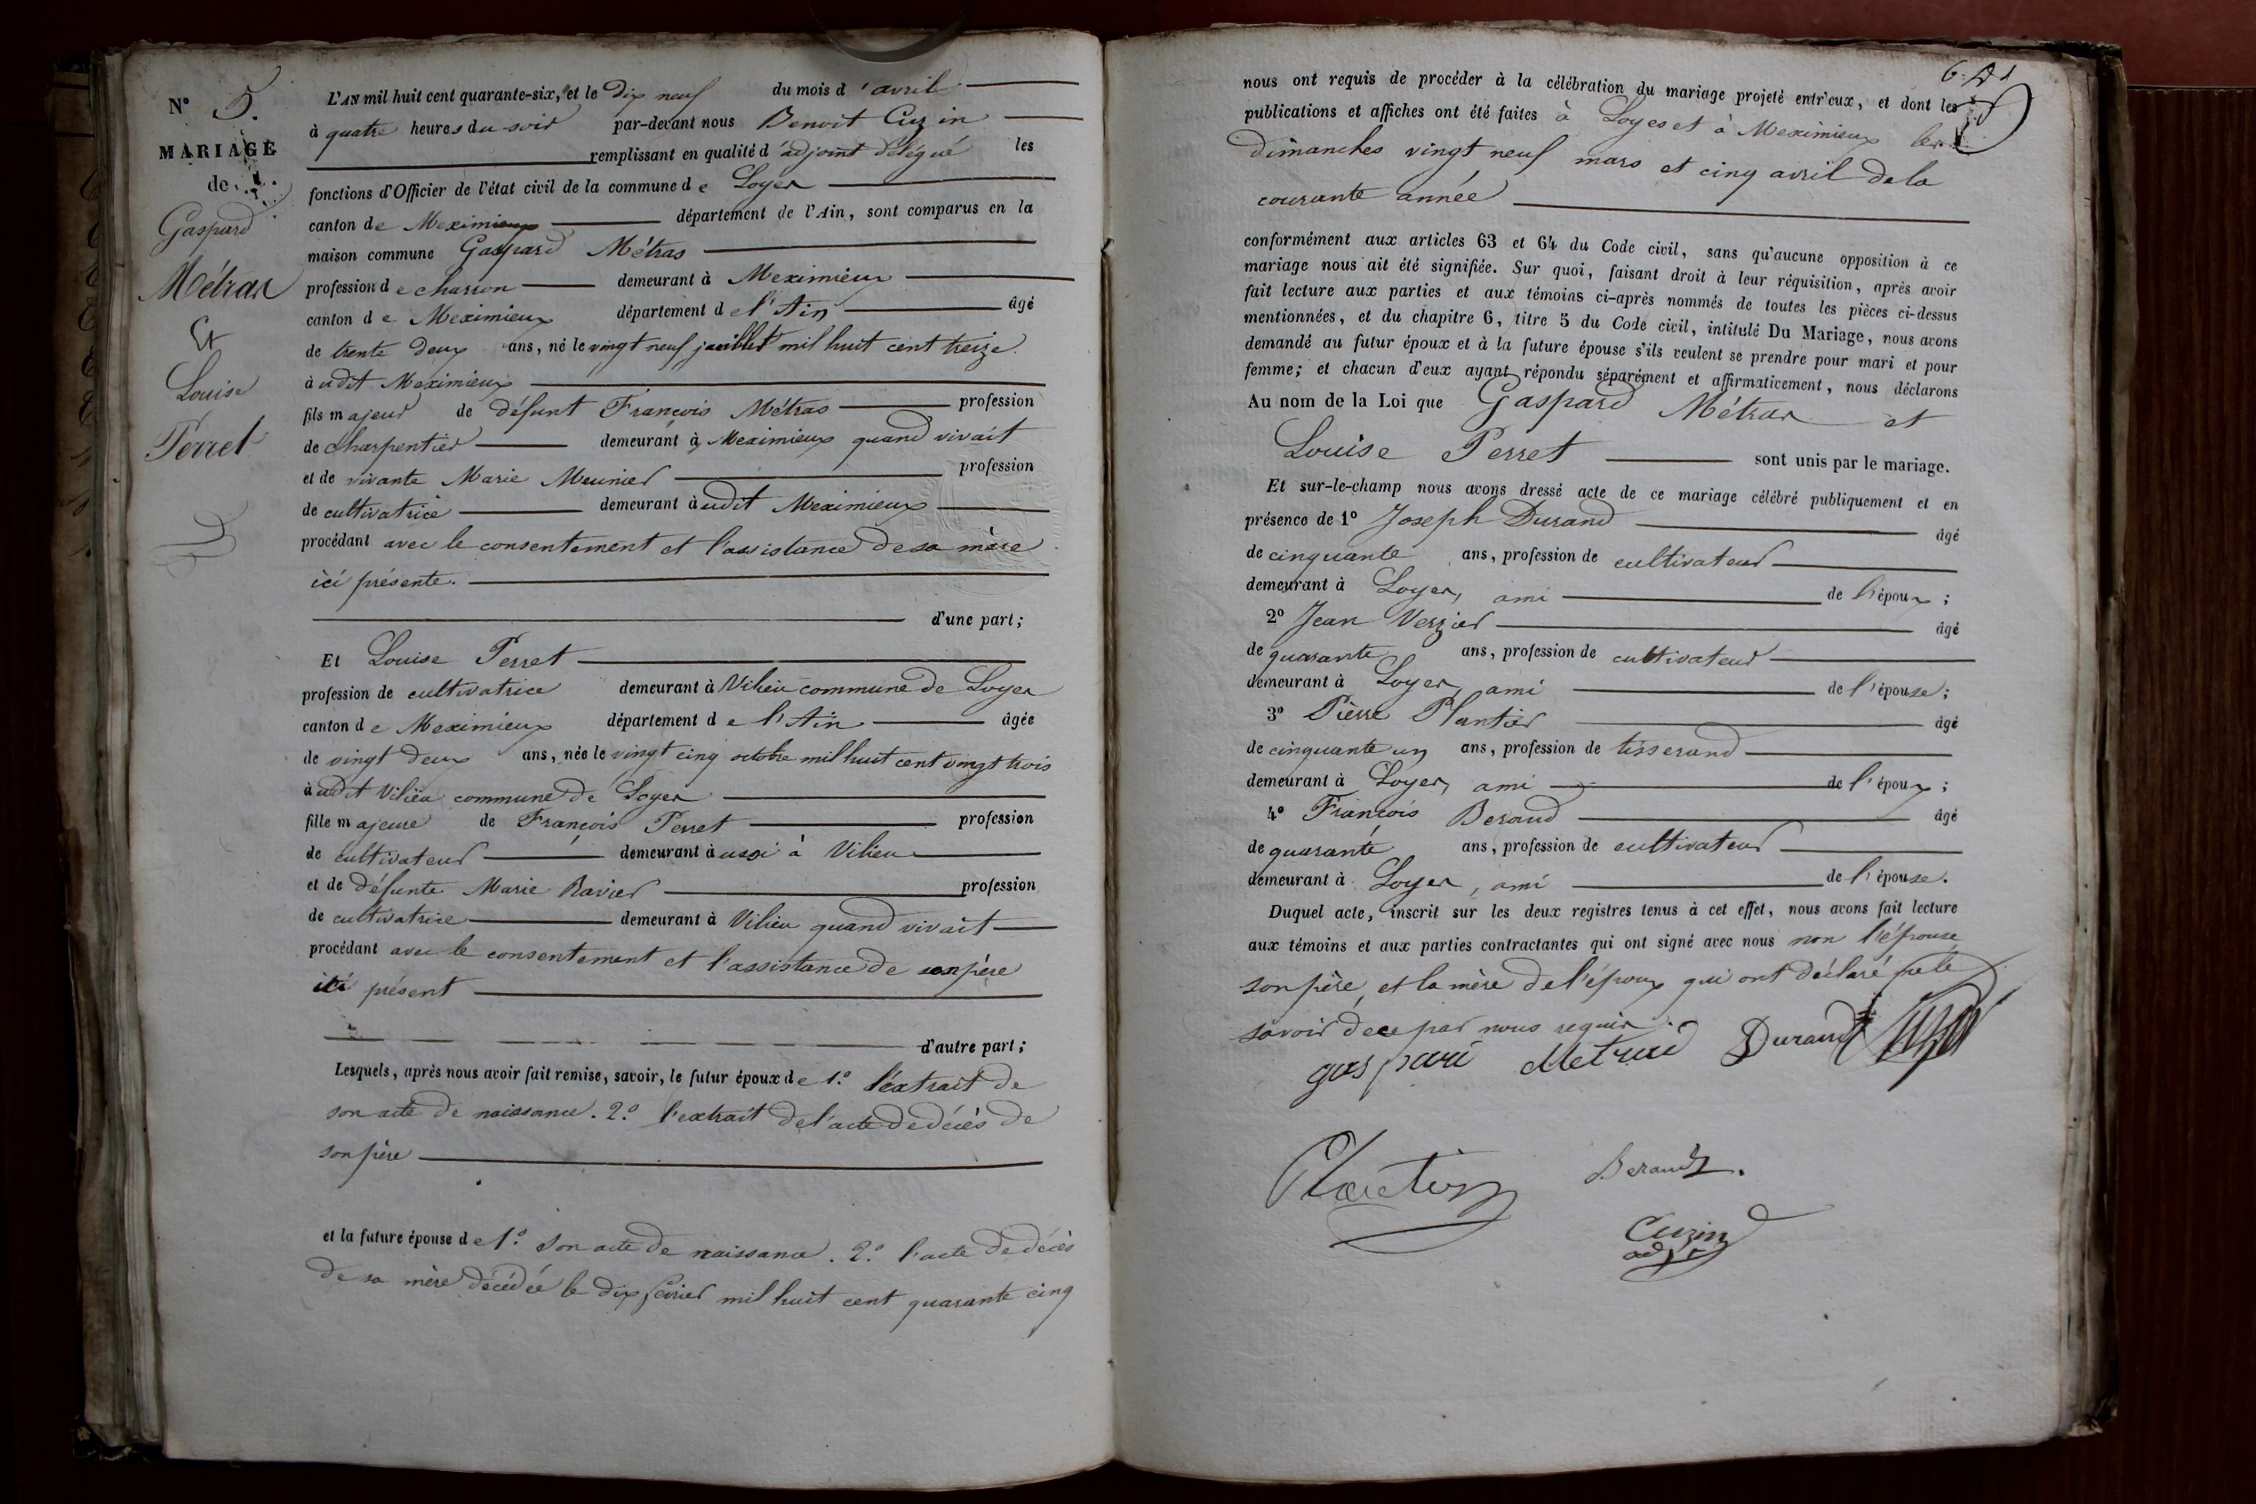 N° 5.
MARIAGE
de
Gaspard
Métras
Et
Louise
Perret
L'AN mil huit cent quarante-six, et le dix neuf du mois d'avril
à quatre heures du soir par-devant nous Benoit Cuzin
remplissant en qualité d'adjoint délégué les
fonctions d'Officier de l'état civil de la commune de Loyes
canton de Meximieux département de l'Ain, sont comparus en la
maison commune Gaspard Métras
profession de charron demeurant à Meximieux
canton de Meximieux département de l'Ain âgé
de trente deux ans, né le vingt neuf juillet mil huit cent treize
à udit Meximieux
fils majeur de défunt François Métras profession
de charpentier demeurant à Meximieux quand vivait
et de vivante Marie Meunier profession
de cultivatrice demeurant à udit Meximieux
procédant avec le consentement et l'assistance de sa mère
ici présente.
d'une part;
Et Louise Perret
profession de cultivatrice demeurant à Vilieu commune de Loyes
canton de Meximieux département de l'Ain âgée
de vingt deux ans, née le vingt cinq octobre mil huit cent vingt trois
à udit Vilieu commune de Loyes
fille majeure de François Perret profession
de cultivateur demeurant à ussi à Vilieu
et de défunte Marie Ravier profession
de cultivatrice demeurant à Vilieu quand vivait
procédant avec le consentement et l'assistance de son père
ici présent
d'autre part;
Lesquels, après nous avoir fait remise, savoir, le futur époux de 1.° l'extrait de
son acte de naissance. 2.° l'extrait de l'acte de décès de
son père
et la future épouse de 1.° son acte de naissance. 2.° l'acte de décès
de sa mère décédée le dix février mil huit cent quarante cinq
nous ont requis de procéder à la célébration du mariage projeté entr'eux, et dont les
publications et affiches ont été faites à Loyes et à Meximieux les
dimanches vingt neuf mars et cinq avril de la
courante année
conformément aux articles 63 et 64 du Code civil, sans qu'aucune opposition à ce
mariage nous ait été signifiée. Sur quoi, faisant droit à leur réquisition, après avoir
fait lecture aux parties et aux témoins ci-après nommés de toutes les pièces ci-dessus
mentionnées, et du chapitre 6, titre 5 du Code civil, intitulé Du Mariage, nous avons
demandé au futur époux et à la future épouse s'ils veulent se prendre pour mari et pour
femme; et chacun d'eux ayant répondu séparément et affirmativement, nous déclarons
Au nom de la Loi que Gaspard Métras et
Louise Perret sont unis par le mariage.
Et sur-le-champ nous avons dressé acte de ce mariage célébré publiquement et en
présence de 1° Joseph Durand âgé
de cinquante ans, profession de cultivateur
demeurant à Loyes, ami de l'époux;
2° Jean Verzier âgé
de quarante ans, profession de cultivateur
demeurant à Loyes, ami de l'épouse;
3° Pierre Plantier âgé
de cinquante un ans, profession de tisserand
demeurant à Loyes, ami de l'époux;
4° François Beraud âgé
de quarante ans, profession de cultivateur
demeurant à Loyes, ami de l'épouse.
Duquel acte, inscrit sur les deux registres tenus à cet effet, nous avons fait lecture
aux témoins et aux parties contractantes qui ont signé avec nous non l'épouse
son père, et la mère de l'époux qui ont déclaré ne le
savoir de ce par nous requis.
gaspard Metras Durand
Beraud.
Cuzin
adjt